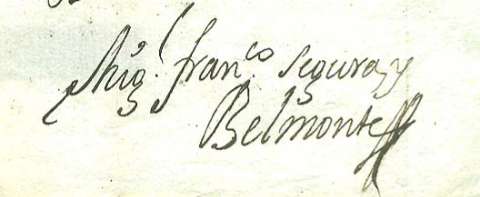 Mig.l fran.co segura y
Belmonte